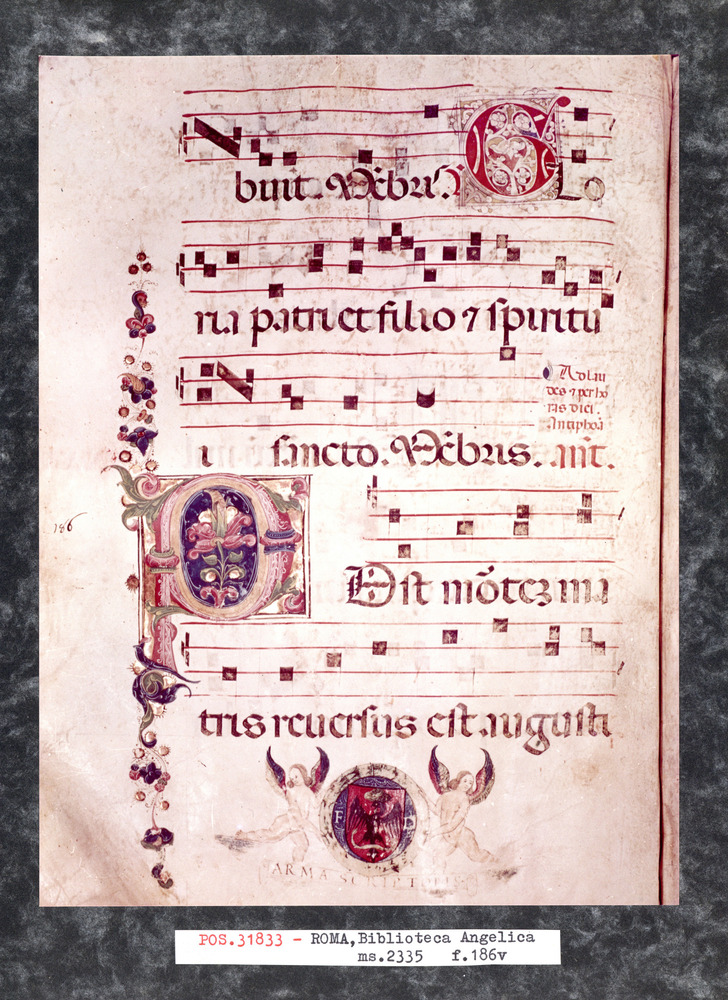 buit. V̄cbū. G Lo
ria patri et filio ⁊ spiritu
i sancto. V̄cbus. ant.
Ad lau
des ⁊ per ho
ras dici.
Antiphoā
P Ost mōtez ma
186
tris reversus est augusti
F D
ARMA SCRIPTORIS
POS.31833 - ROMA,Biblioteca Angelica
ms.2335 f.186v